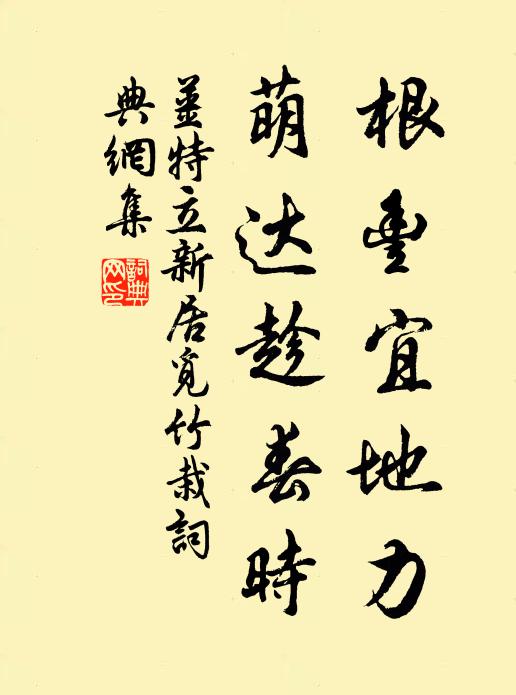 根豐宜地力
萌达趁春時
薑特立新居覓竹栽詞
典網集
詞典网印